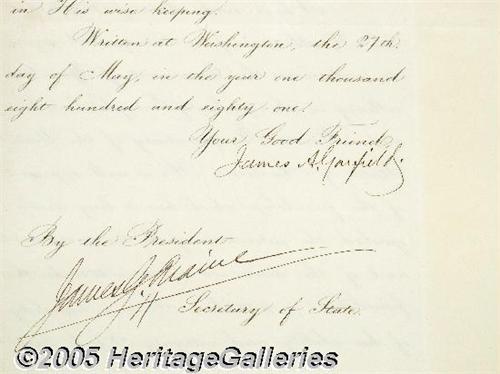 in His wise keeping.
Written at Washington, the 27th.
day of May, in the year one thousand
eight hundred and eighty one.
Your Good Friend,
James A. Garfield.
By the President
James G. Blaine
Secretary of State.
©2005 HeritageGalleries